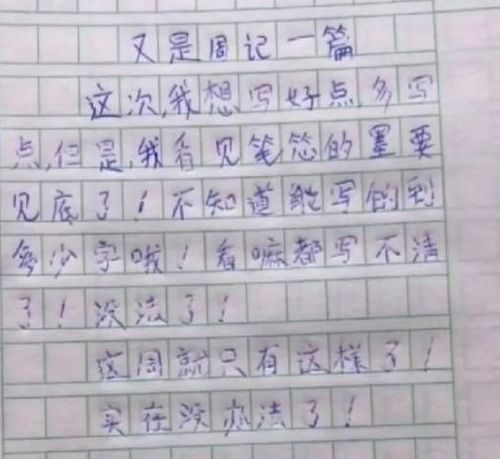 又是周记一篇
这次,我想写好点多写
点,但是,我看见笔芯的墨要
见底了!不知道能写的到
多少字哦!看嘛都写不清
了!没法了!
这周就只有这样了!
实在没办法了!